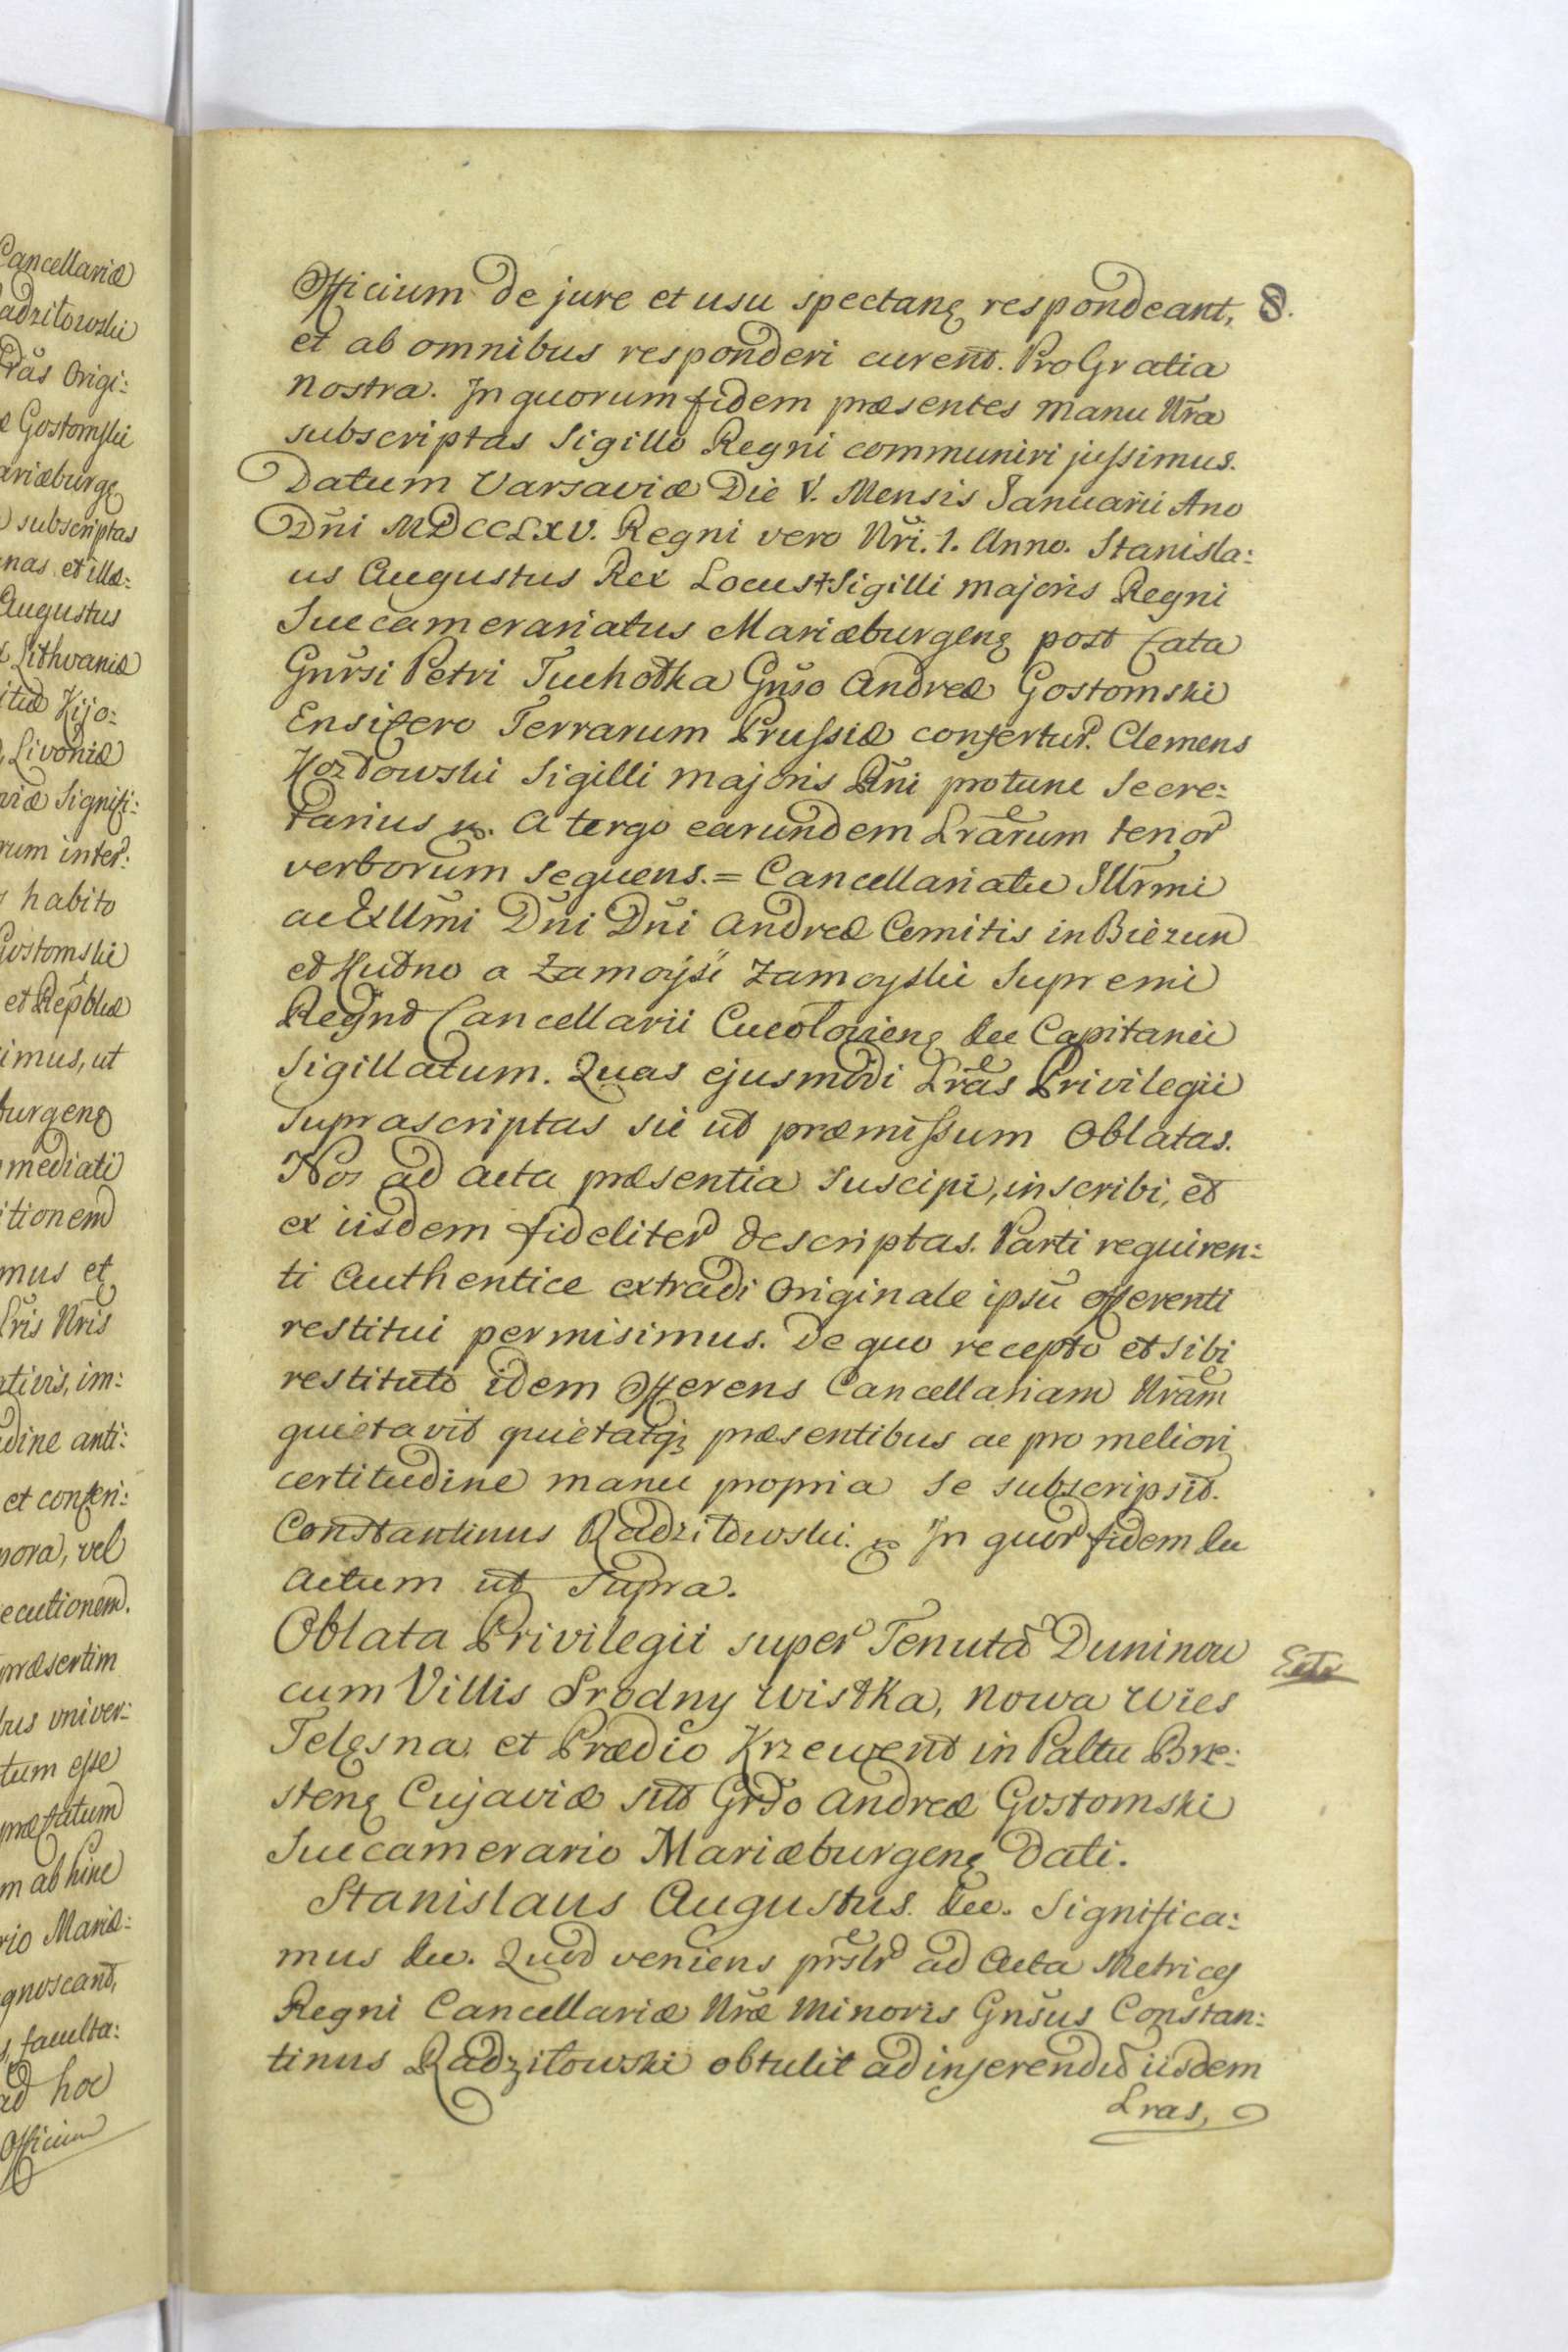 Cancellariæ
adziłowski
Lr̃as Origi:
æ Gostomski
ariæburgę
subscriptas
nas et illæ:
Augustus
Lithvaniæ
itus Kijo:
Livoniæ
viæ Signifi:
rum inter:
habito
Gostomski
et Reipblicæ
imus, ut
burgenę
mediati
itionem
mus et
Lr̃is Nr̃is
ativis, im:
udine anti:
et conferi:
nora, vel
ecutionem.
præsertim
bus univer:
tum eſse
præstitum
m ab hinc
rio Mariæ:
gnoscant,
s, faculta:
ad hoc
Officium
Officium de jure et usu spectanę respondeant, 8.
et ab omnibus responderi curent. Pro Gratia
nostra. In quorum fidem præsentes manu Nr̃a
subscriptas Sigillo Regni communiri juſsimus.
Datum Varsaviæ Die V. Mensis Januarii Ano
Dn̄i MDCCLXV. Regni vero Nr̃i. 1. Anno. Stanisla:
us Augustus Rex Locus + Sigilli majoris Regni
Succamerariatus Mariæburgenę post Fata
Gnr̃si Petri Tuchołka Gn̄so Andreæ Gostomski
Ensifero Terrarum Pruſsiæ confertur. Clemens
Kozdowski Sigilli majoris Rn̄i protunc Secre:
tarius mp. A tergo earundem Lr̃arum tenor
verborum sequens. = Cancellariatu Illr̃mi
ac Exll̃mi Dn̄i Dn̄i Andreæ Comitis in Bieżun
et Kutno a Zamoyście Zamoyski Supremi
Regni Cancellarii &c Capitanei
Sigillatum. Quas ejusmodi Lr̃as Privilegii
suprascriptas sic ut præmiſsum Oblatas.
Nos ad Acta præsentia suscipi, inscribi, et
ex iisdem fideliter descriptas. Parti requiren:
ti Authentice extradi Originale ipsũ offerenti
restitui permisimus. De quo recepto et sibi
restituto idem Offerens Cancellariam Nr̃am
quietavit quietatq; præsentibus ac pro meliori
certitudine manu propria se subscripsit.
Constantinus Radziłowski. mp In quor̃ fidem &c
Actum ut Supra.
Oblata Privilegii super Tenutã Duninow
cum Villis Srodny Wistka, Nowa Wies
Telęsna et Prædio Krzewent in Paltu Bre:
stenę Cujaviæ sit̃ Grdo Andreæ Gostomski
Succamerario Mariæburgenę Dati.
Stanislaus Augustus. &c. Significa:
mus &c. Quod veniens pr̃slr ad Acta Metrices
Regni Cancellariæ Nr̃æ Minoris Gn̄sus Constan:
tinus Radziłowski obtulit ad inserendũ iisdem
Lras,